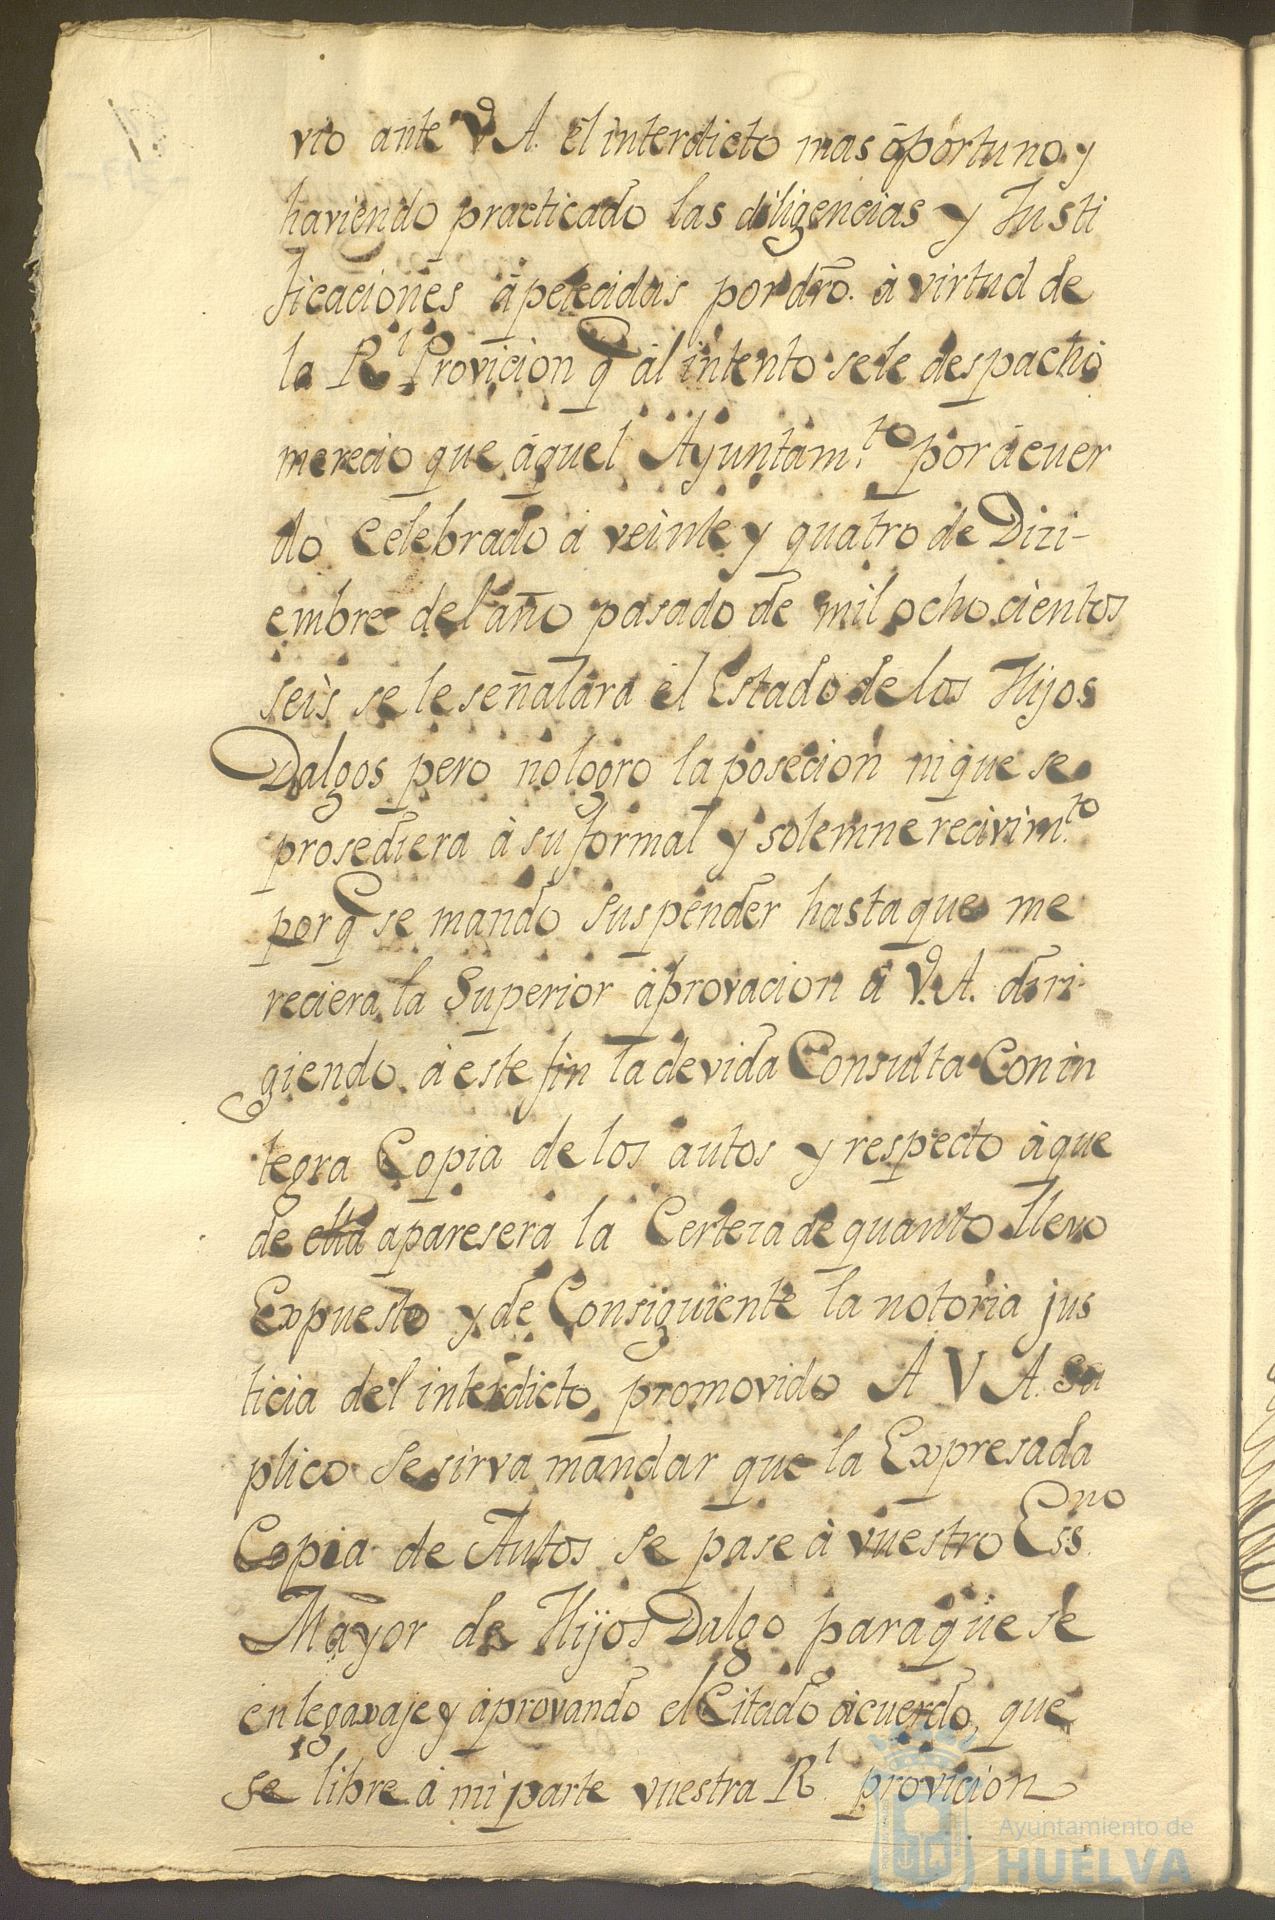 vio ante V.A. el interdicto mas oportuno y
haviendo practicado las diligencias y Justi
ficaciones apetecidas por dro. à virtud de
la Rl. Provicion q al intento sele despachó
merecio que aquel Ayuntam.to por acuer
do Celebrado à veinte y quatro de Dizi-
embre del año pasado de mil ocho cientos
seis se le señalara el Estado de los Hijos
Dalgos pero no logro la posecion ni que se
prosediera à su formal y solemne recivim.to
porq se mando suspender hasta que me
reciera la Superior aprovacion à V.A. diri
giendo à este fin la devida Consulta Con in
tegra Copia de los autos y respecto à que
de ella aparesera la Certeza de quanto llevo
Expuesto y de Consiguiente la notoria jus
ticia del interdicto promovido A V A. Su
plico se sirva mandar que la Expresada
Copia de Autos se pase à vuestro Ess.no
Mayor de Hijos Dalgo para que se
enlegaxaje y aprovando el Citado acuerdo, que
se libre à mi parte vuestra Rl. provicion
Ayuntamiento de
HUELVA